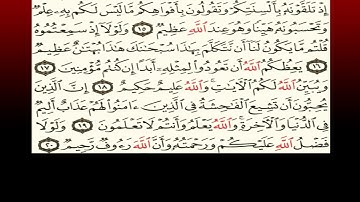 إِذْ تَلَقَّوْنَهُۥ بِأَلْسِنَتِكُمْ وَتَقُولُونَ بِأَفْوَاهِكُم مَّا لَيْسَ لَكُم بِهِۦ عِلْمٌ
وَتَحْسَبُونَهُۥ هَيِّنًا وَهُوَ عِندَ ٱللَّهِ عَظِيمٌ ١٥ وَلَوْلَآ إِذْ سَمِعْتُمُوهُ
قُلْتُم مَّا يَكُونُ لَنَآ أَن نَّتَكَلَّمَ بِهَٰذَا سُبْحَٰنَكَ هَٰذَا بُهْتَٰنٌ عَظِيمٌ
١٦ يَعِظُكُمُ ٱللَّهُ أَن تَعُودُوا۟ لِمِثْلِهِۦٓ أَبَدًا إِن كُنتُم مُّؤْمِنِينَ ١٧
وَيُبَيِّنُ ٱللَّهُ لَكُمُ ٱلْءَايَٰتِ وَٱللَّهُ عَلِيمٌ حَكِيمٌ ١٨ إِنَّ ٱلَّذِينَ
يُحِبُّونَ أَن تَشِيعَ ٱلْفَٰحِشَةُ فِى ٱلَّذِينَ ءَامَنُوا۟ لَهُمْ عَذَابٌ أَلِيمٌ
فِى ٱلدُّنْيَا وَٱلْءَاخِرَةِ وَٱللَّهُ يَعْلَمُ وَأَنتُمْ لَا تَعْلَمُونَ ١٩ وَلَوْلَا
فَضْلُ ٱللَّهِ عَلَيْكُمْ وَرَحْمَتُهُۥ وَأَنَّ ٱللَّهَ رَءُوفٌ رَّحِيمٌ ٢٠